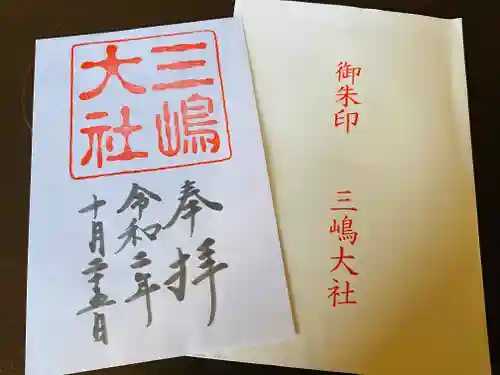 三嶋
大社
奉拝
令和二年
十月二十五日
御朱印 三嶋大社